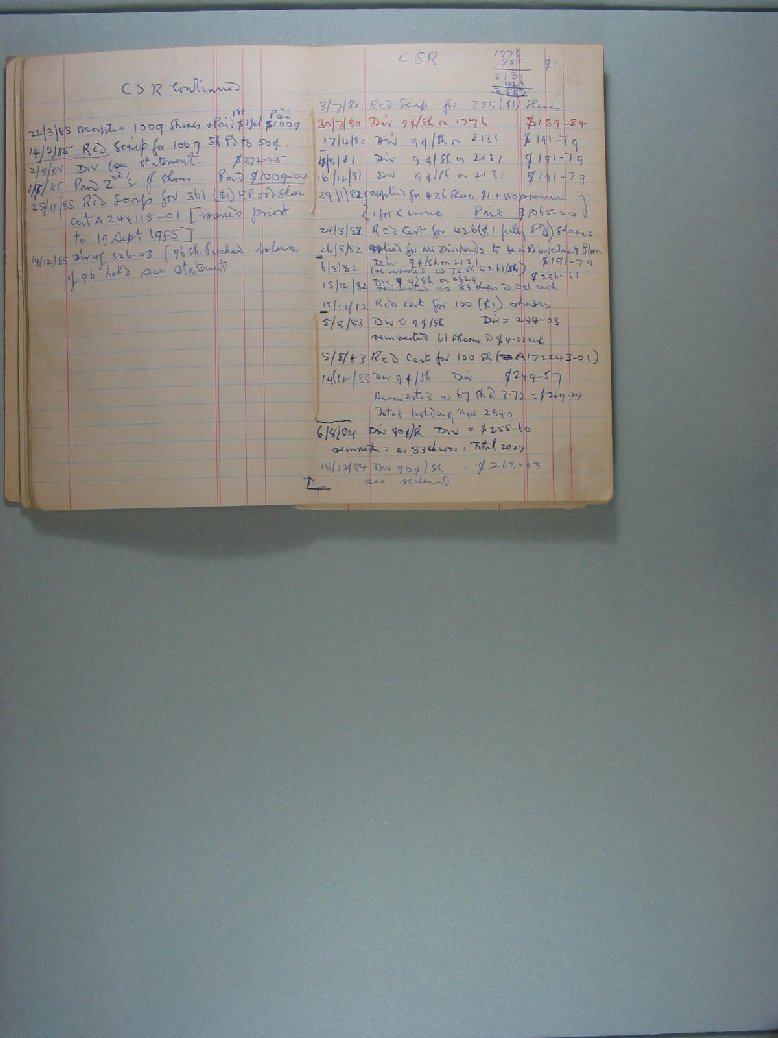 CSR Continued
22/3/85 Accepted 1009 Shares Paid $1 1st Paid $1009
14/5/85 Rec'd Scrip for 1009 Sh Pd to 50¢
2/8/85 Div (see statement $272-25
1/8/85 Paid 2nd ½ of Shares Paid $1009-00
25/11/85 Rec'd Scrip for 361 ($1)
Cert A 248118-01 [issued prior
to 19 Sept 1985]
19/12/85 Div of 326-03 (96 sh. balance
of 96¢ held see statement
CSR
1776
355
2131
426
$1
3/7/80 Rec'd Scrip for 355 ($1) Shares
30/7/80 Div 9¢/Sh on 1776 $159-84
17/12/80 Div 9¢/Sh on 2131 $191-79
Div 9¢/Sh on 2131 $191-79
16/12/81 Div 9¢/Sh on 2131 $191-79
29/1/82 applied for 426 Shares $1 + 150 premium
1 for 5 issue Paid $1065-00
24/3/82 Rec'd Cert for 426 ($1 fully Pd) Shares
26/5/82 applied for all Dividends to be in Reinvestment Plan
Div 9¢/Sh on 2131 $191-79
(reinvested as 72 sh
15/12/82 Div 9¢/Sh on 2629 $236-61
reinvested as 83 shares each
15/12/82 Rec'd Cert for 100 ($1) shares
5/8/83 Div 9¢/Sh Div = 244-08
reinvested 61 Shares
5/8/83 Rec'd Cert for 100 Sh (A172243-01)
Div 9¢/Sh Div $249-57
Reinvested as 67 Sh @ 3.72 = $249-24
Total holding now 2840
6/8/84 Div Div = $255-60
reinvested as 83 shares. Total 2923
19/12/84 Div 9¢/Sh = $263-03
see statement